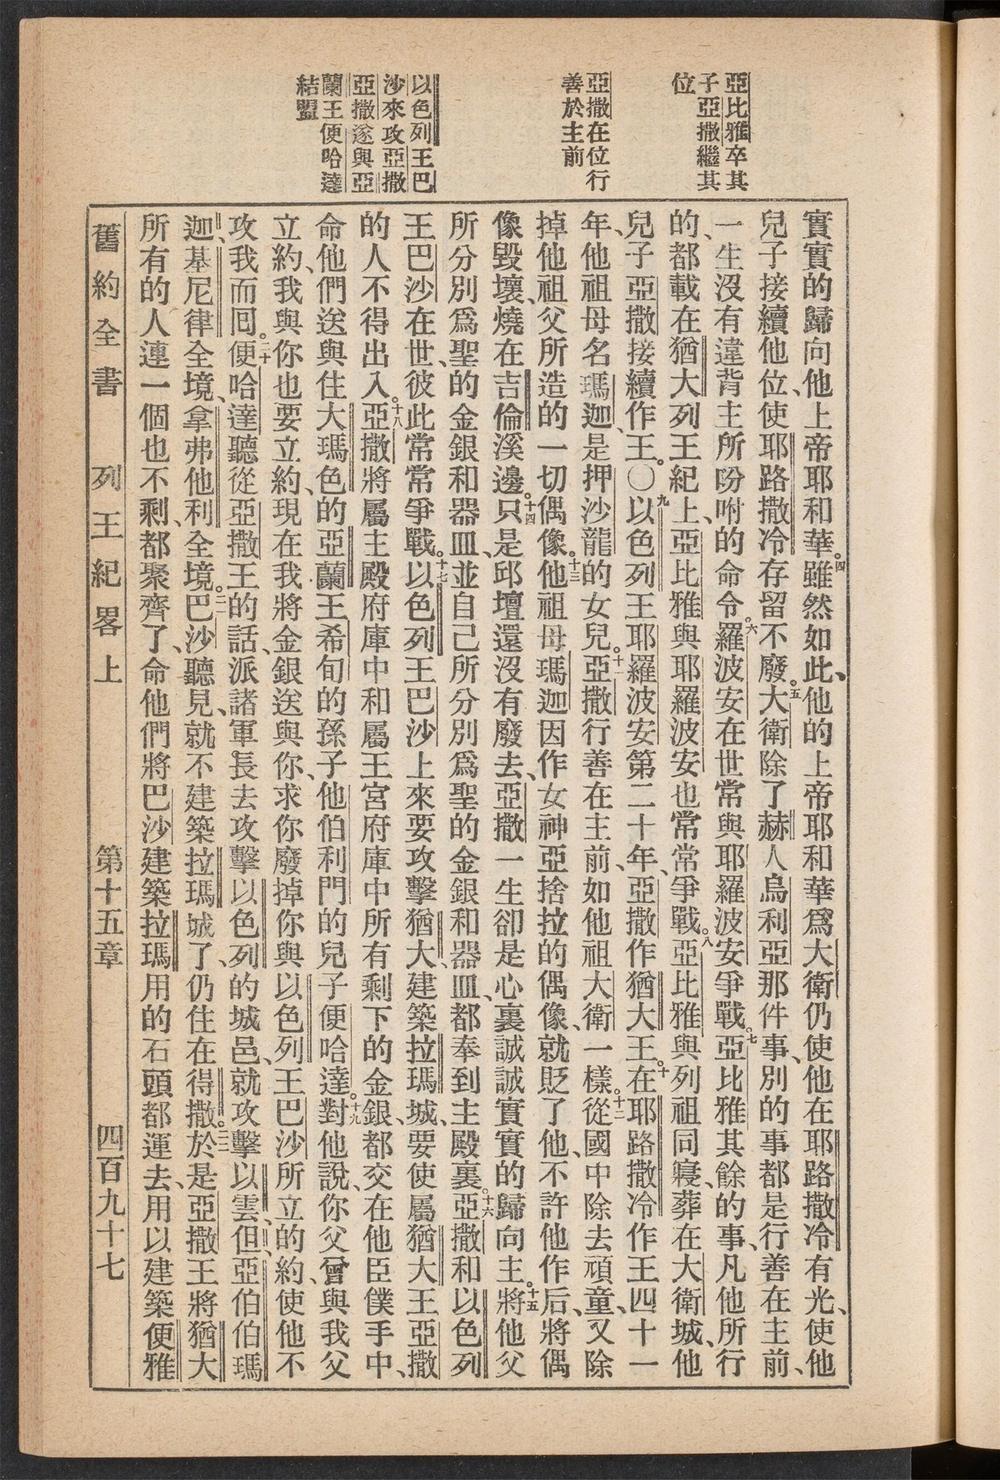 亞比雅卒其
子亞撒繼其
位
亞撒在位行
善於主前
以色列王巴
沙來攻亞撒
亞撒遂與亞
蘭王便哈達
結盟
實實的歸向他上帝耶和華。四雖然如此、他的上帝耶和華爲大衛仍使他在耶路撒冷有光、使他
兒子接續他位、使耶路撒冷存留不廢。五大衛除了赫人烏利亞那件事、別的事都是行善在主前、
一生沒有違背主所吩咐的命令。六羅波安在世常與耶羅波安爭戰。七亞比雅其餘的事、凡他所行
的、都載在猶大列王紀上、亞比雅與耶羅波安也常常爭戰。八亞比雅與列祖同寢、葬在大衛城、他
兒子亞撒接續作王。〇九以色列王耶羅波安第二十年、亞撒作猶大王。十在耶路撒冷作王四十一
年、他祖母名瑪迦、是押沙龍的女兒。十一亞撒行善在主前、如他祖大衛一樣。十二從國中除去頑童、又除
掉他祖父所造的一切偶像。十三他祖母瑪迦因作女神亞捨拉的偶像、就貶了他、不許他作后、將偶
像毀壞、燒在吉倫溪邊。十四只是邱壇還沒有廢去、亞撒一生卻是心裏誠誠實實的歸向主。十五將他父
所分別爲聖的金銀和器皿、並自己所分別爲聖的金銀和器皿、都奉到主殿裏。十六亞撒和以色列
王巴沙在世、彼此常常爭戰。十七以色列王巴沙上來要攻擊猶大、建築拉瑪城、要使屬猶大王亞撒
的人不得出入。十八亞撒將屬主殿府庫中和屬王宮府庫中所有剩下的金銀、都交在他臣僕手中、
命他們送與住大瑪色的亞蘭王希旬的孫子、他伯利門的兒子便哈達。十九對他說、你父曾與我父
立約、我與你也要立約、現在我將金銀送與你、求你廢掉你與以色列王巴沙所立的約、使他不
攻我而回。二十便哈達聽從亞撒王的話、派諸軍長去攻擊以色列的城邑、就攻擊以雲、但、亞伯伯瑪
迦、基尼律全境、拿弗他利全境。二一巴沙聽見、就不建築拉瑪城了、仍住在得撒。二二於是亞撒王將猶大
所有的人連一個也不剩、都聚齊了、命他們將巴沙建築拉瑪用的石頭都運去、用以建築便雅
舊約全書 列王紀畧上 第十五章 四百九十七